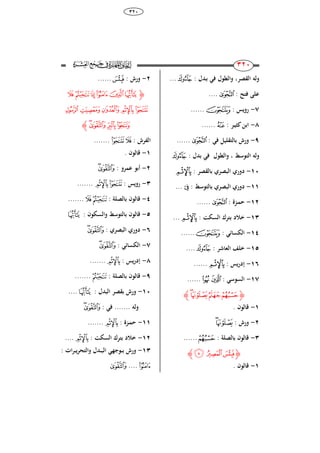 ٣٢٠
٣٢٠
وله القصر، والطول في بدل : ءَامَنُوٓا۟ ...
على فتح : ٱلنَّجْوَىٰ ....
٧- رويس : وَيَتَنَـٰجَوْنَ ......
٨- ابن كثير : عَنْهُ ......
٩- ورش بالتقليل في : ٱلنَّجْوَىٰ ......
وله التوسط ، والطول في بدل :
١٠- دوري البصري بالقصر : بِٱلْإِثْمِ ......
١١- دوري البصري بالتوسط : ...
١٢- حمزة : ٱلنَّجْوَىٰ ......
١٣- خلاد بترك السكت : بِٱلْإِثْمِ ...
١٤- الكسائي : وَيَتَنَـٰجَوْنَ ......
١٥- خلف العاشر : ....
١٦- إدريس : بِٱلْإِثْمِ ......
١٧- السوسي : ......
﴿ حَسْبُهُمْ جَهَنَّمُ يَصْلَوْنَهَا ﴾
١- قالون .
٢- ورش : يَصْلَوْنَهَا
٣- قالون بالصلة : حَسْبُهُمْ ......
﴿ فَبِئْسَ ٱلْمَصِيرُ ٨ ﴾
١- قالون .
٢- ورش : فَبِئْسَ ......
﴿ يَـٰٓأَيُّهَا ٱلَّذِينَ ءَامَنُوٓا۟ إِذَا تَنَـٰجَيْتُمْ فَلَا
تَتَنَـٰجَوْا۟ بِٱلْإِثْمِ وَٱلْعُدْوَٰنِ وَمَعْصِيَتِ ٱلرَّسُولِ
وَتَنَـٰجَوْا۟ بِٱلْبِرِّ وَٱلتَّقْوَىٰ ﴾
الفرش : فَلَا تَتَنَـٰجَوْا۟ ......
١- قالون .
٢- أبو عمرو : وَٱلتَّقْوَىٰ
٣- رويس : تَنتَجُوا۟ بِٱلْإِثْمِ ......
٤- قالون بالصلة : تَنَـٰجَيْتُمْ فَلَا ......
٥- قالون بالتوسط والسكون : يَـٰٓأَيُّهَا
٦- دوري البصري : وَٱلتَّقْوَىٰ
٧- الكسائي : وَٱلتَّقْوَىٰ
٨- إدريس : بِٱلْإِثْمِ ......
٩- قالون بالصلة : تَنَـٰجَيْتُمْ ......
١٠- ورش بقصر البدل : يَـٰٓأَيُّهَا ....
وله ...... في : وَٱلتَّقْوَىٰ
١١- حمزة : بِٱلْإِثْمِ ......
١٢- خلاد بترك السكت : بِٱلْإِثْمِ ....
١٣- ورش بوجهي البدل والتحريرات :
ءَامَنُوٓا۟ .... وَٱلتَّقْوَىٰ